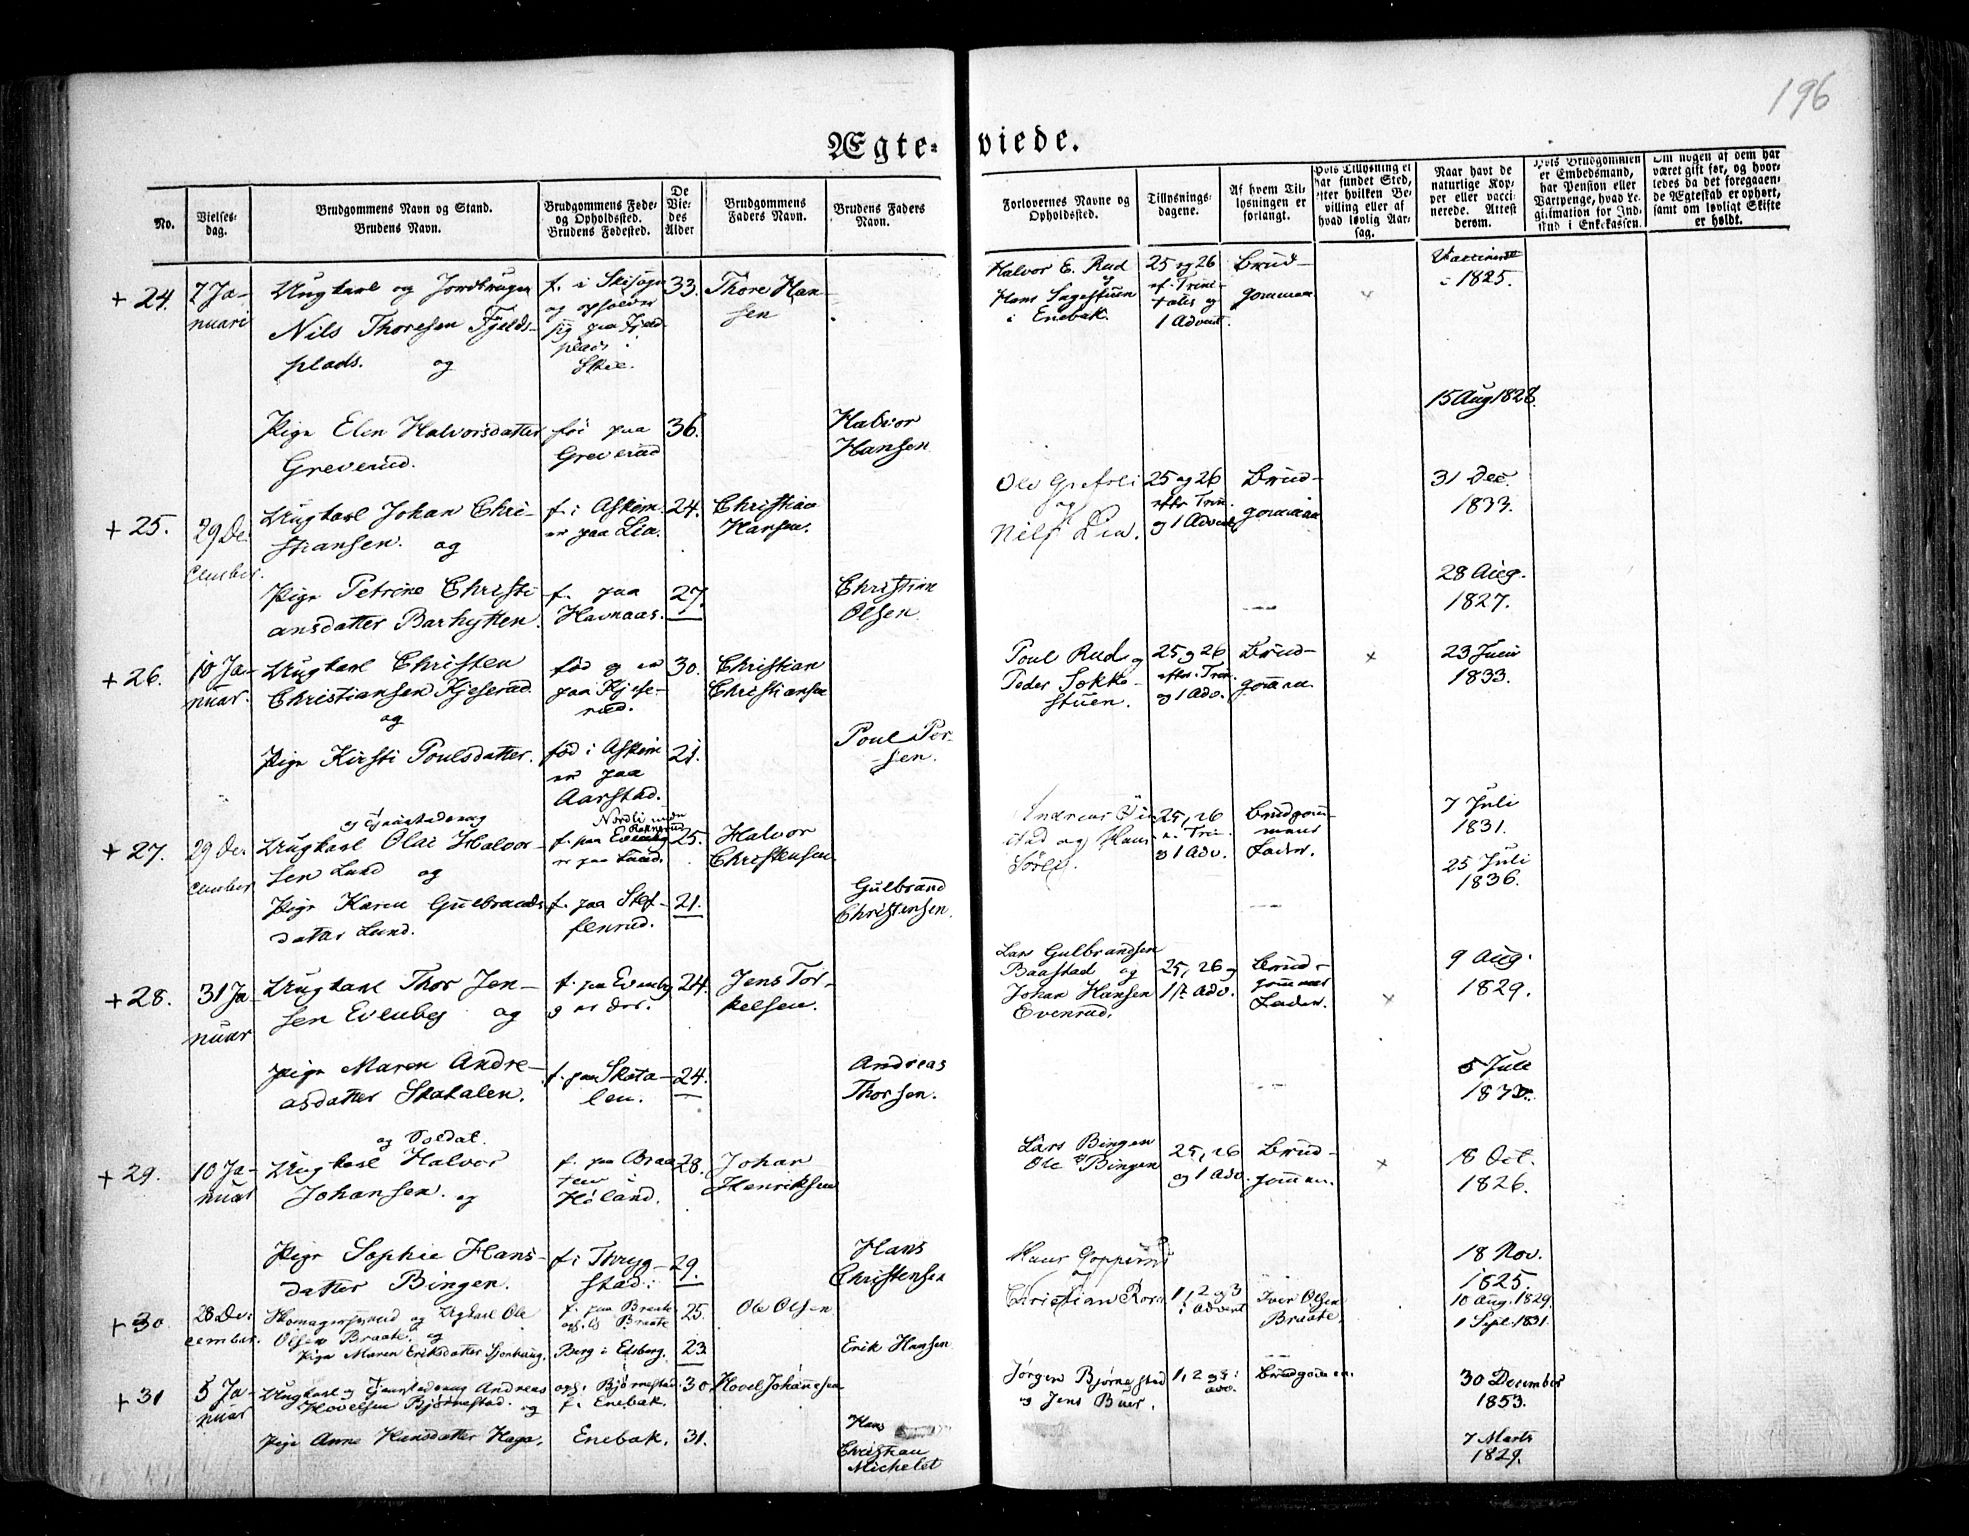 196
Ægte-viede.
No.
Vielses-dag.
Brudgommens Navn og Stand.
Brudens Navn.
Brudgommens Føde- og Opholdssted.
Brudens Fødested.
De Viedes Alder
Brudgommens Faders Navn.
Brudens Faders Navn.
Forlovernes Navne og Opholdssted.
Tillysnings-dagene.
Af hvem Tillysningen er forlangt.
Hvis Tillysning ei har fundet Sted, efter hvilken Bevilling eller af hvad lovlig Aarsag.
Naar havt de naturlige Kopper eller vaccinerede. Attest derom.
Hvis Brudgommen er Embedsmand, har Pension eller Vartpenge, hvad Legitimation for Indskud i Enkekassen.
Om nogen af dem har været gift før, og hvorledes da det foregaaende Ægtestad er ophørt, samt om lovligt Skifte er holdt.
+ 24. 7 Januari
Ungkarl og Jordbruger Nils Thoresen Fjeldsplads. og
f. i Skisogn og opholder sig paa Fjeldplads i Skie.
33. Thore Hansen
Halvor E. Rud og Hans Sagestuen i Enebak.
25 og 26 ef. Trinitatis og 1 Advent.
Brudgommen
Vaccineret 1825.
Pige Elen Halvorsdatter Greverud.
fød paa Greverud
36.
Halvor Hansen
15 Aug 1828.
+ 25. 29 December.
Ungkarl Johan Christiansen. og
f. i Askim er paa Lia.
24. Christian Hansen.
Nils Lia.
25 og 26 efter Trin. og 1 Advent
Brudgommen
31 Dec 1833.
Pige Petrine Christiansdatter Barhytten.
f. paa Havnaas.
27.
Christian Olsen
28 Aug. 1827.
+ 26. 10 Januar.
Ungkarl Christen Christiansen Kjeserud og
fød og er paa Kjeserud.
30. Christian Christiansen
Poul Rud og Peder Sokkestuen.
25 og 26 efter Trin. og 1 Adv.
Brudgommen.
x
23 Juni 1833.
Pige Kirsti Poulsdatter.
fød i Askim er paa Aarstad.
21.
Poul Persen.
+ 27. 29 December
Ungkarl og Gaardmand Olai Halvorsen Lund og
25. Halvor Christensen
25, 26 e. Trin. og 1 Adv.
Brudgommens Fader.
7 Juli 1831.
Pige Karen Gulbrandsdatter Lund.
f. paa Steffenrud.
21.
Gulbrand Christensen.
25 Juli 1836.
+ 28. 31 Januar
Ungkarl Thor Jensen Evenby og
f. paa Evenby og er der.
24. Jens Torkelsen.
Lars Gulbrandsen Baastad og Johan Hansen Evenrud.
25, 26 og 1ste Adv.
Brudgommens Fader.
x
9 Aug. 1829.
Pige Maren Andreasdatter Skatalen.
f. paa Skatalen.
24.
Andreas Thorsen.
5 Juli
+ 29. 10 Januar
Ungkarl og Soldat. Halvor Johansen. og
f. paa Braaten i Høland.
28. Johan Henriksen
Lars Bingen og Ole Bingen
25, 26 og 1 Adv.
Brudgommen.
x
18 Oct. 1826.
Pige Sophie Hansdatter Bingen.
f. i Thrygstad.
29.
Hans Christensen
18 Nov. 1825.
+ 30. 28 December.
Skomagersvend og Ugkarl Ole Olsen Braate. og
f. paa Braate ops. ib Braate
25. Ole Olsen
1, 2 og 3 i Advent
Iver Olsen Braate.
10 Aug. 1829.
Pige Maren Eriksdatter
Berg i Edsberg.
23.
Erik Hansen
1 Sept. 1831.
+ 31 5 Januar
Ungkarl og Gaardmand Andreas Hovelsen Bjørnestad. og
ops. Bjørnestad f. i Enebak.
30. Hovel Johannesen
Jørgen Bjørnestad og Jens Buer.
1, 2 og 3 i Adv.
Brudgommen.
30 December 1853.
Pige Anne Hansdatter Haga.
Enebak.
31.
Hans Christian Michelet
7 Marts 1829.